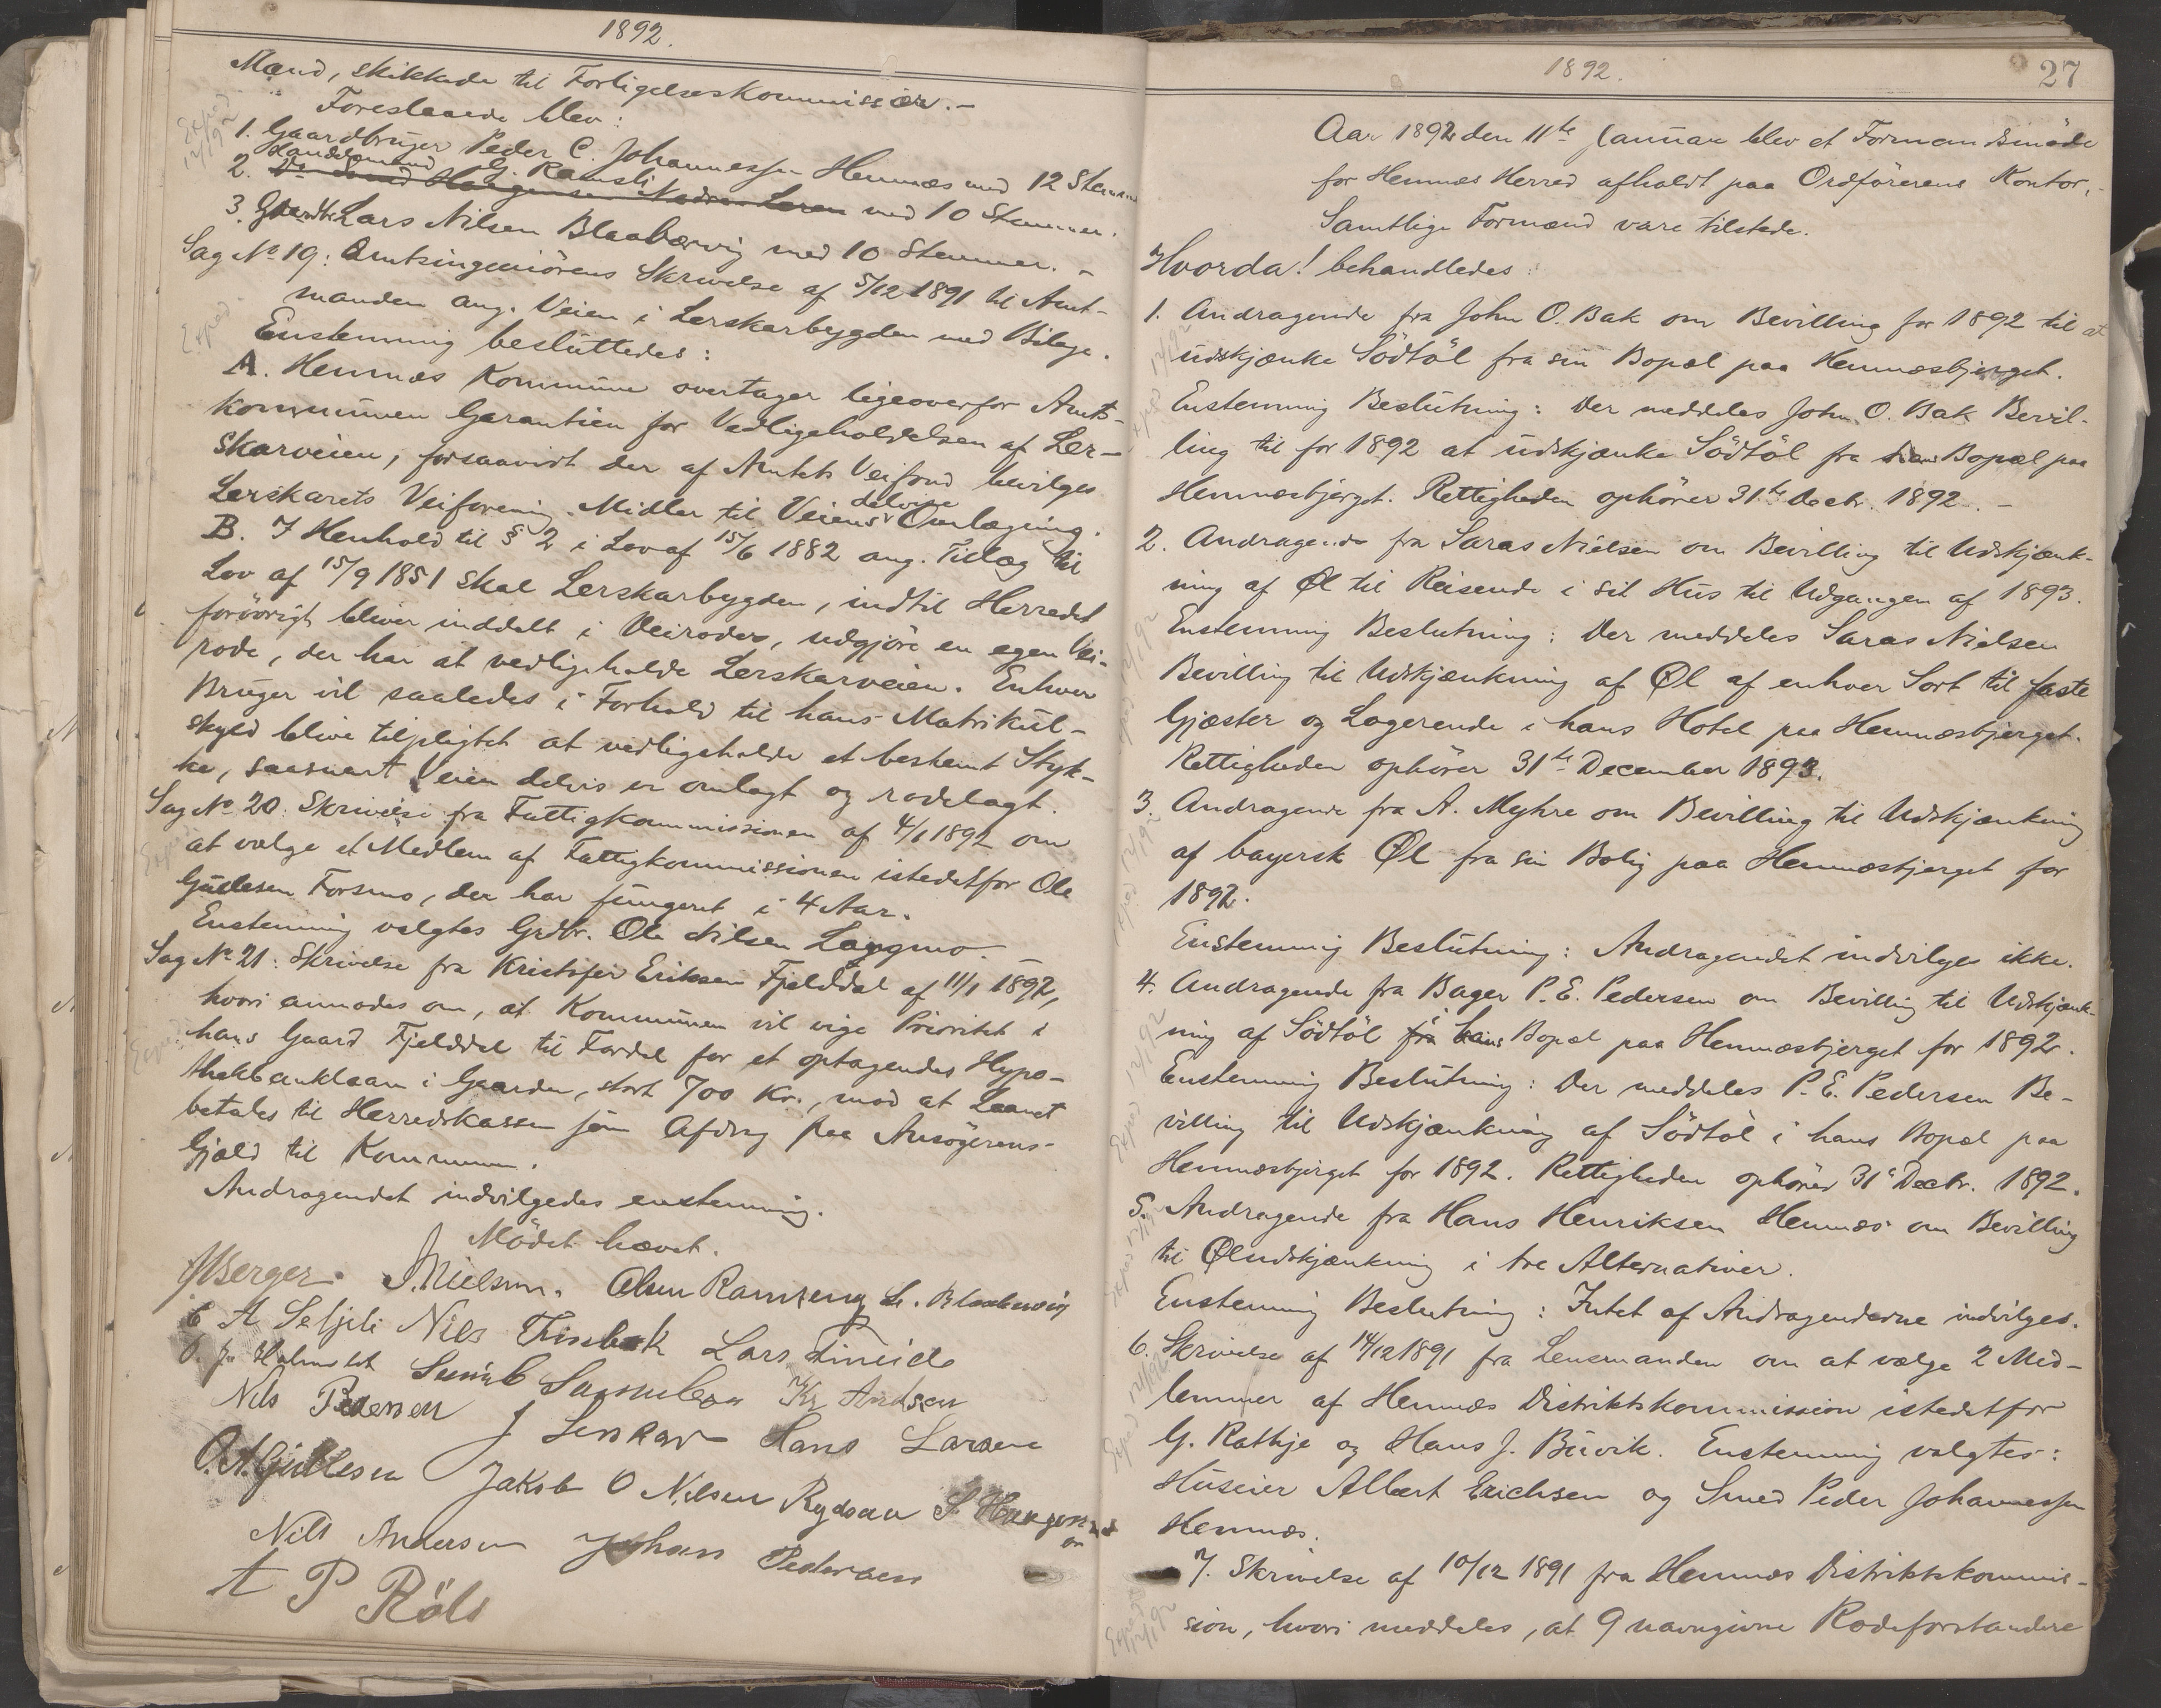 1892.
Mænd, skikkede til Forligelseskommissær. -
Foreslaaede blev:
1. Gaardbruger Peder C. Johannessen Hemnæs med 12 Stemmer
Handelsmand G. Ramsli
2. med 10 Stemmer.
3. Gaardbr. Lars Nilsen Blaabærvig med 10 Stemmer. -
Sag No 19: Amtsingeniörens Skrivelse af 5/12 1891 til Amt-
manden ang. Veien i Lerskarbygden med Bilage.
Exped
Enstemmig besluttedes:
A. Hemnæs Kommune overtager ligeoverfor Amts-
kommunen Garantien for Vedligeholdelsen af Ler-
skarveien, forsaavidt der af Amtets Veifond bevilges
Lerskarets Veiforening Midler til Veiens delvise Omlægning.
B. I Henhold til § 2 i Lov af 15/6 1882 ang. Tillæg til
Lov af 15/9 1851 skal Lerskarbygden, indtil Herredet
forövrigt bliver inddelt i Veiroder, udgjöre en egen Vei-
rode, der har at vedligeholde Lerskarveien. Enhver
Bruger vil saaledes i Forhold til hans Matrikul-
skyld blive tilpligtet at vedligeholde et bestemt Styk-
ke, saasnart Veien delvis er omlagt og rodelagt.
Sag No 20. Skrivelse fra Fattigkommissionen af 4/1 1892 om
at vælge et Medlem af Fattigkommissionen istedetfor Ole
Gullesen Forsmo, der har fungeret i 4 Aar.
Enstemmig valgtes Grdbr. Ole Nilsen Langmo.
Sag No 21: Skrivelse fra Kristofer Eriksen Fjelddal af 11/1 1892,
hvori anmodes om, at Kommunen vil vige Prioritet i
hans Gaard Fjelddal til Fordel for et optagendes Hypo-
thekbanklaan i Gaarden, stort 700 Kr., mod at Laanet
betales til Herredskassen som Afdrag paa Ansögerens
Gjæld til Kommunen.
Andragendet indvilgedes enstemmig.
Mödet hævet.
Berger. S. Nielsen. Olsen Ramseng L. Blaabærvig
E A Seljeli Nils Finbak Lars Fineide
O. J. Holmslet Sumb Samuelsen Kr Andsen
Nils Pedersen J Lenkar Hans Larsen
O. A. Gullesen Jakob O Nilsen Rydsaa S Haugen
Nils Andersen Johan Pedersen
A P Röls
1892.
27
Aar 1892 den 11te Januar blev et Formandsmöde
for Hemnæs Herred afholdt paa Ordförerens Kontor,
Samtlige Formænd vare tilstede.
Hvorda! behandledes:
1. Andragende fra John O. Bak om Bevilling for 1892 til at
udskjænke Södtöl fra sin Bopæl paa Hemnæsbjerget.
Enstemmig Beslutning: Der meddeles John O. Bak Bevil-
ling til for 1892 at udskjænke Södtöl fra sin Bopæl paa
Hemnæsbjerget. Rettigheden ophörer 31te Decbr. 1892. -
2. Andragende fra Saras Nielsen om Bevilling til Udskjænk-
ning af Øl til Reisende i sit Hus til Udgangen af 1893.
Enstemmig Beslutning: Der meddeles Saras Nielsen
Bevilling til Udskjænkning af Øl af enhver Sort til faste
Gjæster og Logerende i hans Hotel paa Hemnæsbjerget.
Rettigheden ophörer 31te December 1893.
3. Andragende fra A. Myhre om Bevilling til Udskjænkning
af bayersk Øl fra sin Bolig paa Hemnæsbjerget for
1892.
Enstemmig Beslutning: Andragendet indvilges ikke.
4. Andragende fra Bager P. E. Pedersen om Bevilling til Udskjænk-
ning af Södtöl i hans Bopæl paa Hemnæsbjerget for 1892.
Enstemmig Beslutning: Der meddeles P. E. Pedersen Be-
villing til Udskjænkning af Södtöl i hans Bopæl paa
Hemnæsbjerget for 1892. Rettigheden ophörer 31te Decbr. 1892.
5. Andragende fra Hans Henriksen Hemnæs om Bevilling
til Øludskjænkning i tre Alternativer.
Enstemmig Beslutning: Intet af Andragenderne indvilges.
6. Skrivelse af 14/12 1891 fra Lensmanden om at vælge 2 Med-
lemmer af Hemnæs Distriktskommission istedetfor
G. Rathje og Hans J. Buvik. Enstemmig valgtes:
Huseier Albert Erichsen og Smed Peder Johannessen
Hemnæs.
7. Skrivelse af 10/12 1891 fra Hemnæs Distriktskommis-
sion, hvori meddeles, at 9 navngivne Rodeforstandere